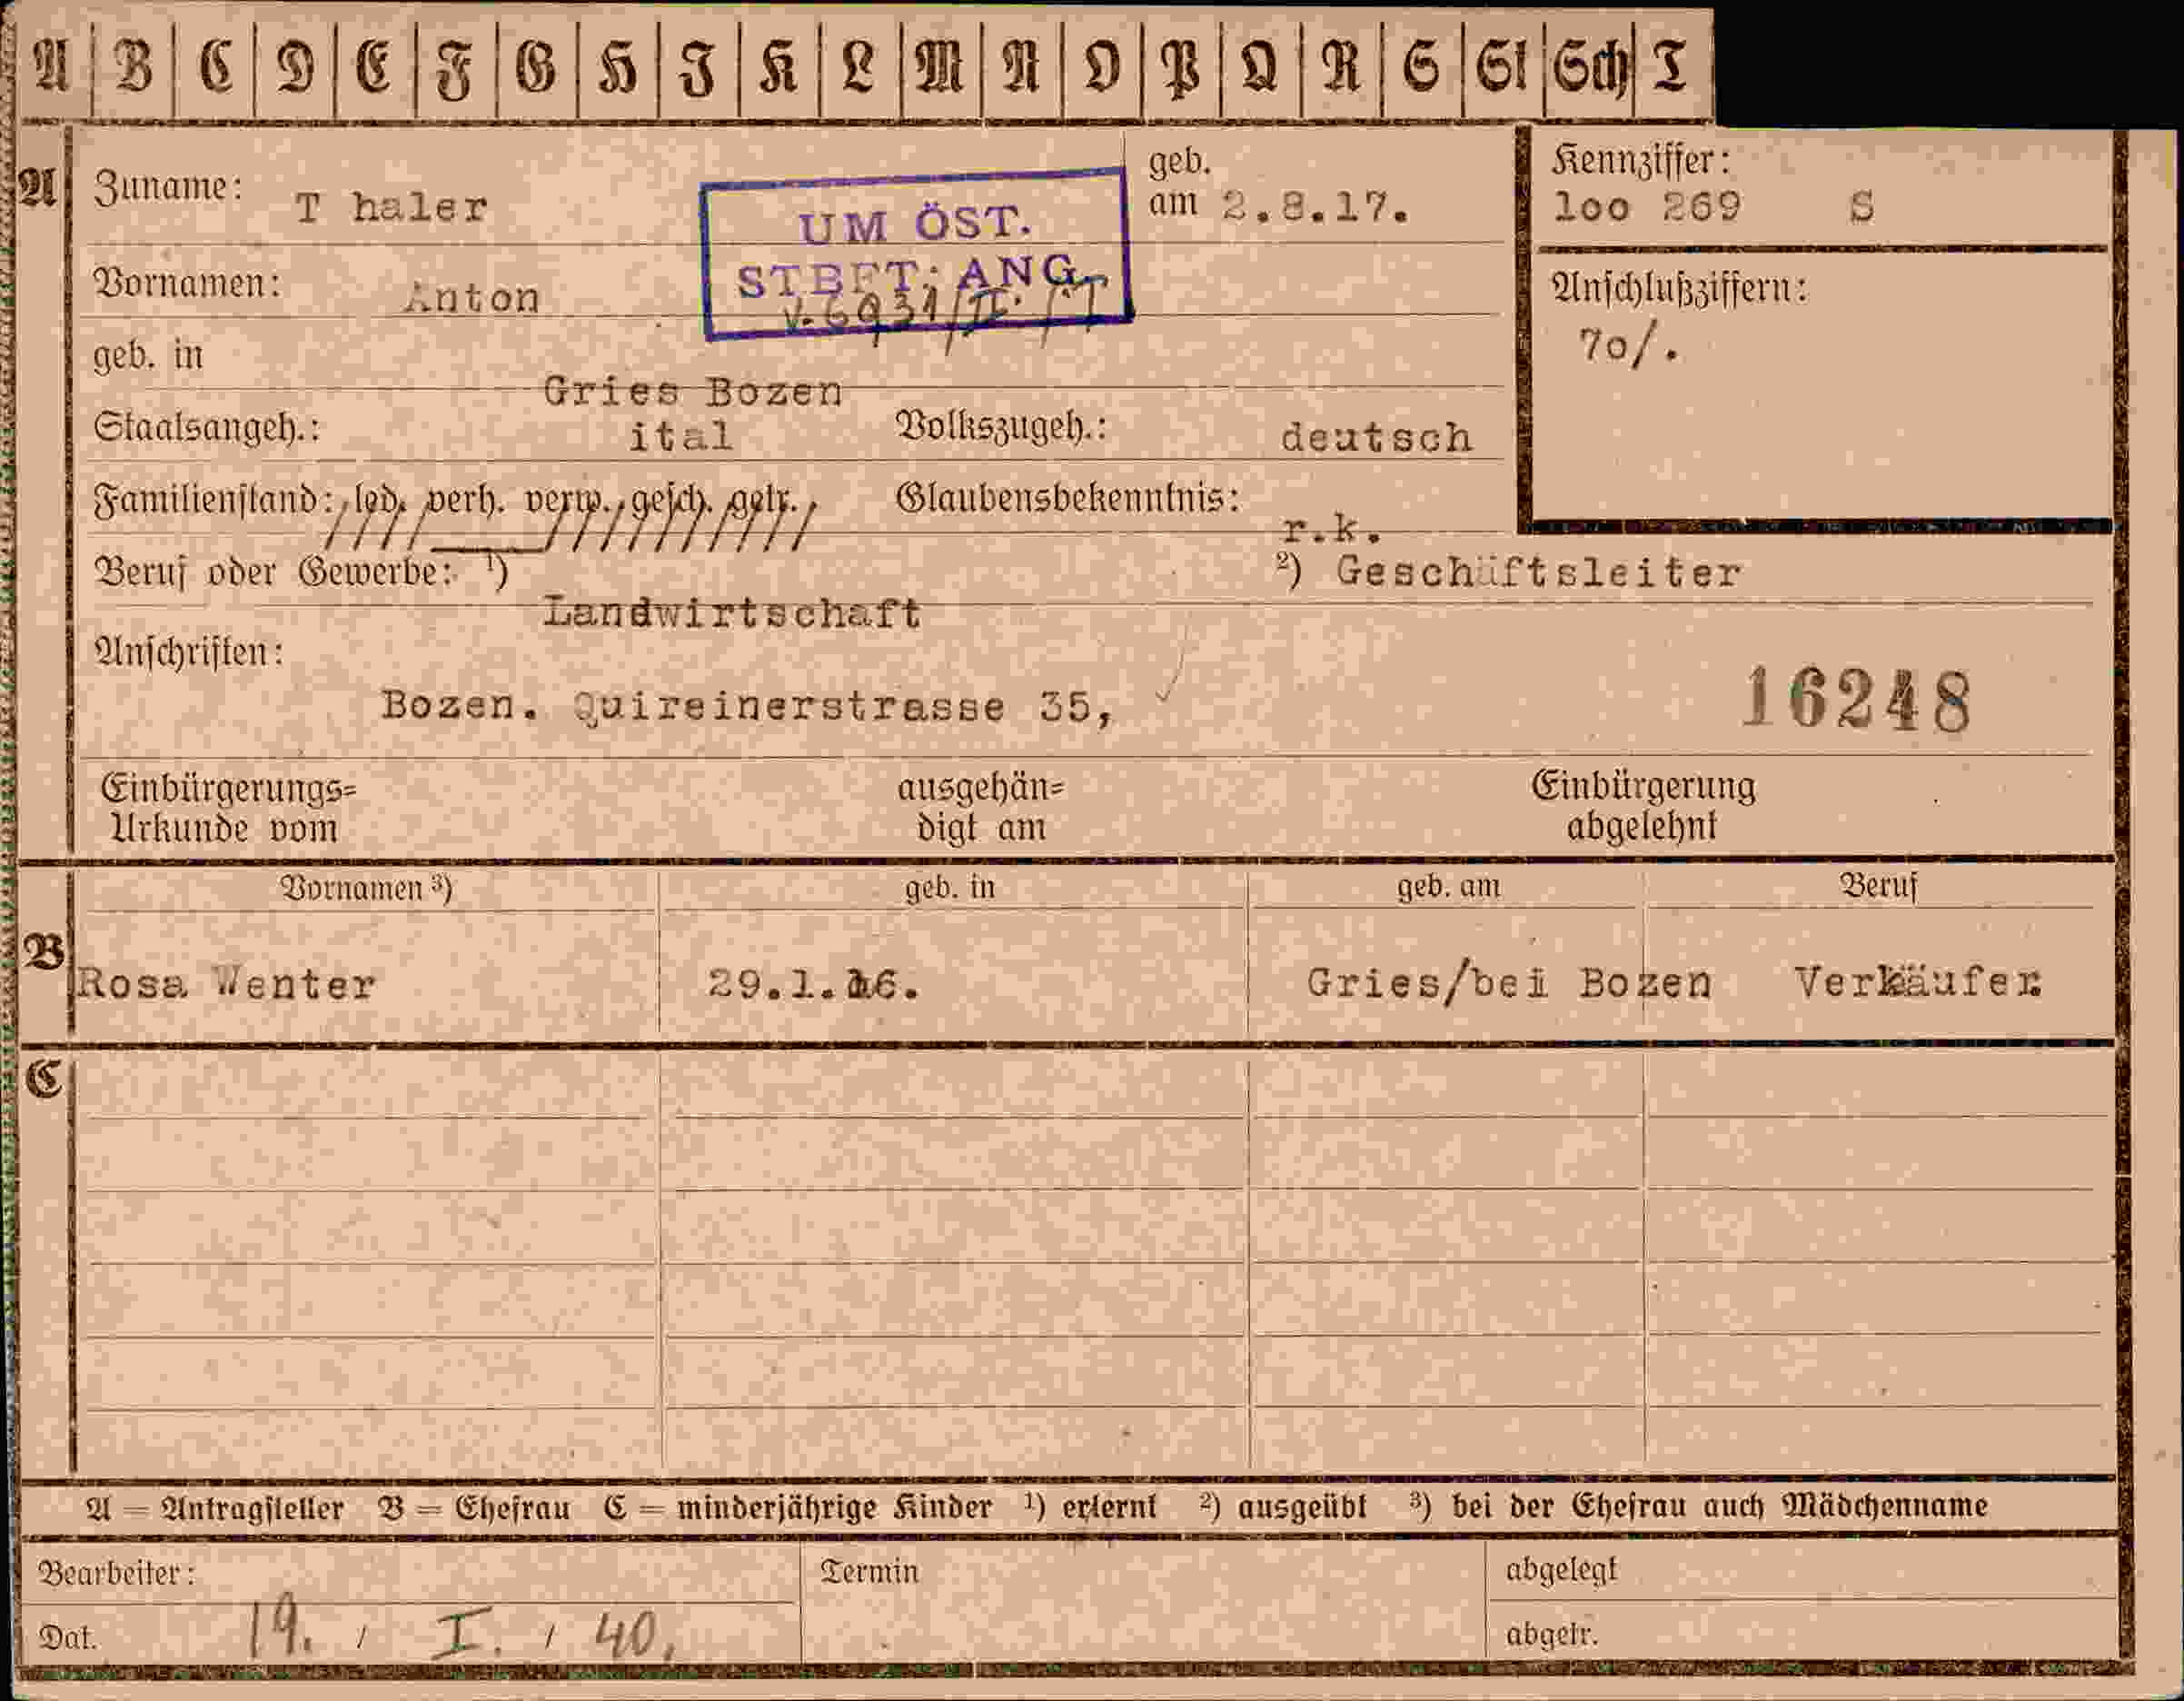 A B C D E F G H I K L M N O P Q R S St Sch T
A
Zuname: T haler
geb. am 2.8.17.
Kennziffer:
loo 269 S
UM ÖST.
STBFT: ANG.
Vornamen: Anton
Anschlußziffern:
7o/.
geb. in Gries Bozen
Staatsangeh.: ital Volkszugeh.: deutsch
Familienstand: led. verh. verw. gesch. getr. Glaubensbekenntnis: r.k.
Beruf oder Gewerbe: ¹) Landwirtschaft ²) Geschäftsleiter
Anschriften:
Bozen. Quireinerstrasse 35,
16248
Einbürgerungs= Urkunde vom
ausgehän= digt am
Einbürgerung abgelehnt
B
Vornamen ³) geb. in geb. am Beruf
Rosa Wenter 29.1.16. Gries/bei Bozen Verkäufer
C
A = Antragsteller B = Ehefrau C = minderjährige Kinder ¹) erlernt ²) ausgeübt ³) bei der Ehefrau auch Mädchenname
Bearbeiter:
Termin
abgelegt
Dat. 19. / I. / 40.
abgetr.